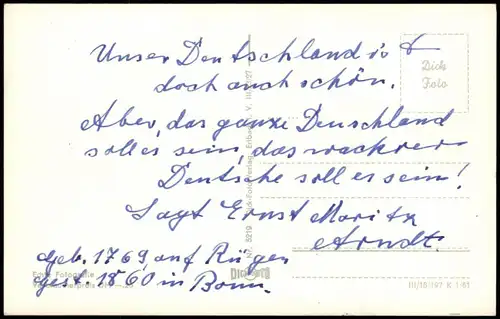 Unser Deutschland is t
doch auch schön.
Aber, das ganze Deuschland
soll es sein, das wackrer
Deutsche soll es sein!
Sagt Ernst Moritz
Arndt.
geb. 1769, auf Rügen
gest. 1860 in Bonn.
Dick
Foto
Echte Fotografie
III/18/197 K 1/61